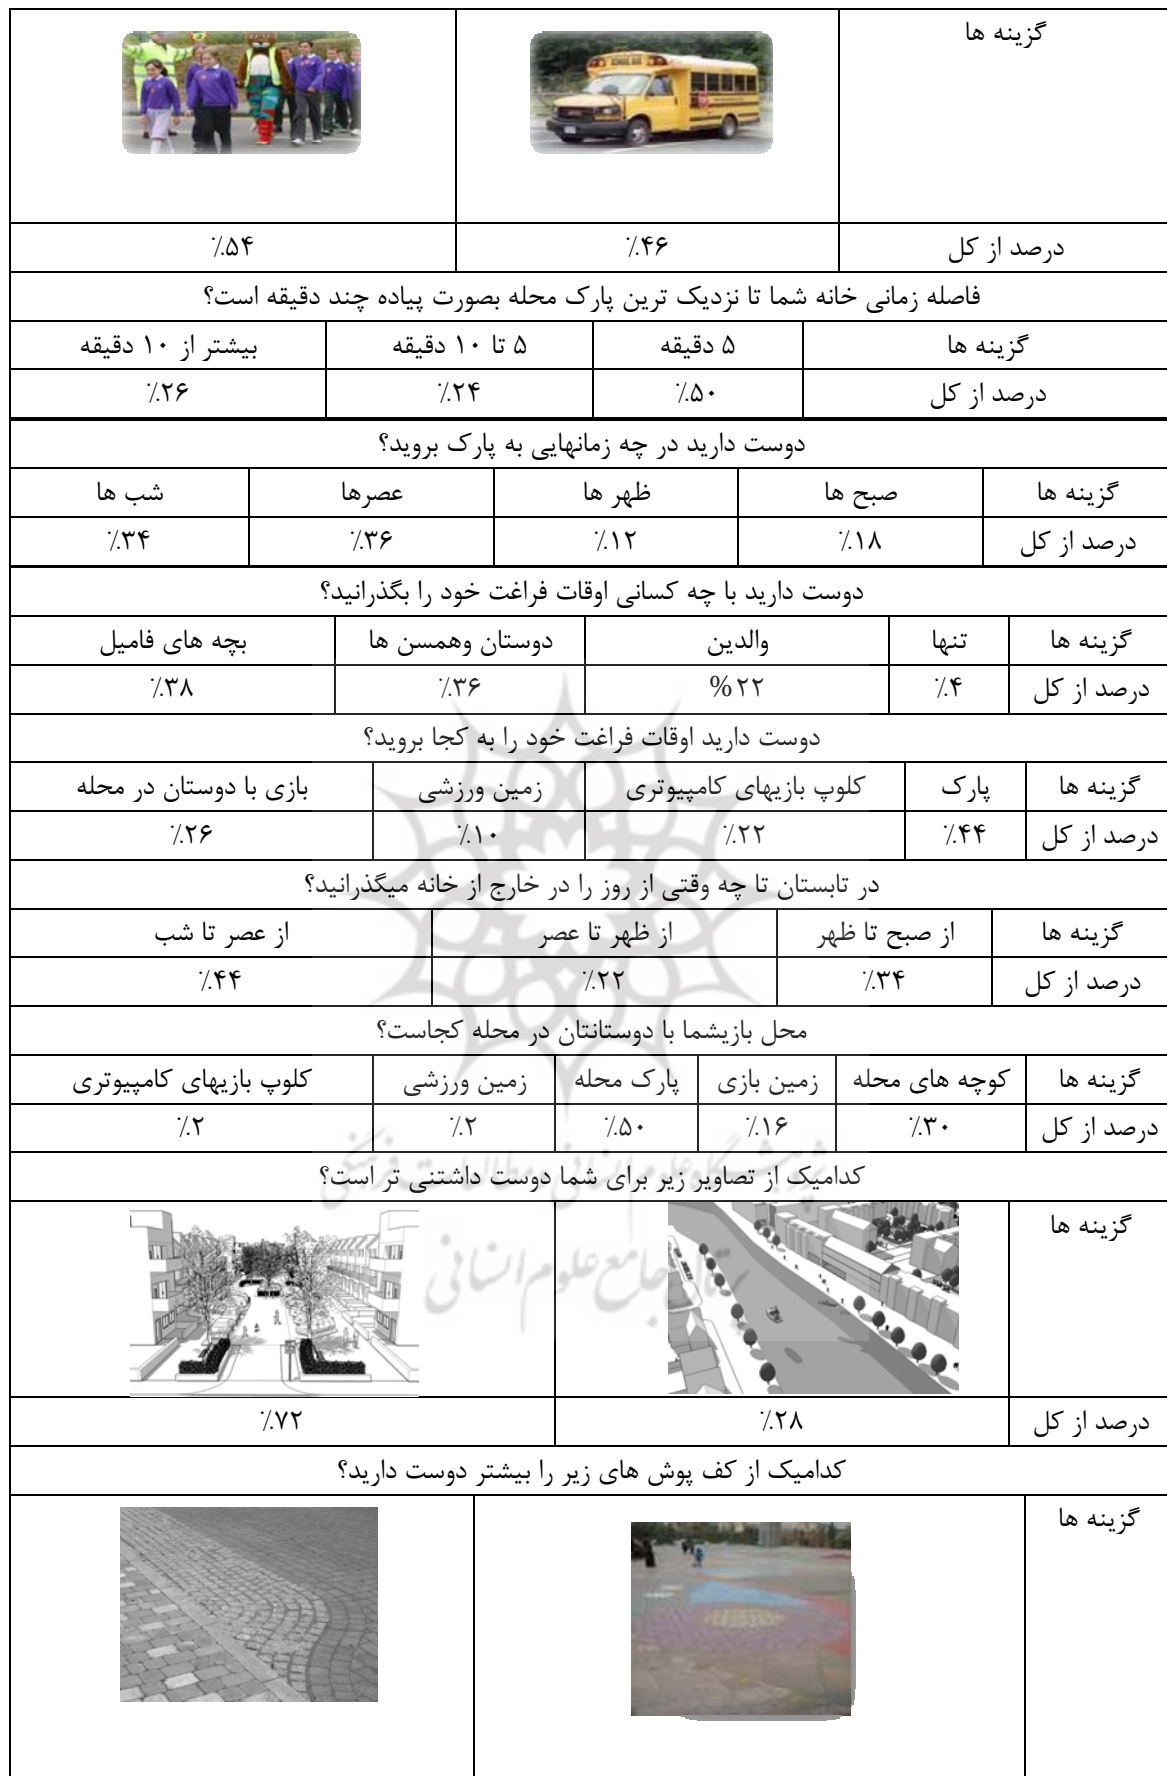 گزینه ها
درصد از کل ٪۴۶ ٪۵۴
فاصله زمانی خانه شما تا نزدیک ترین پارک محله بصورت پیاده چند دقیقه است؟
گزینه ها ۵ دقیقه ۵ تا ۱۰ دقیقه بیشتر از ۱۰ دقیقه
درصد از کل ٪۵۰ ٪۲۴ ٪۲۶
دوست دارید در چه زمانهایی به پارک بروید؟
گزینه ها صبح ها ظهر ها عصرها شب ها
درصد از کل ٪۱۸ ٪۱۲ ٪۳۶ ٪۳۴
دوست دارید با چه کسانی اوقات فراغت خود را بگذرانید؟
گزینه ها تنها والدین دوستان وهمسن ها بچه های فامیل
درصد از کل ٪۴ %۲۲ ٪۳۶ ٪۳۸
دوست دارید اوقات فراغت خود را به کجا بروید؟
گزینه ها پارک کلوپ بازیهای کامپیوتری زمین ورزشی بازی با دوستان در محله
درصد از کل ٪۴۴ ٪۲۲ ٪۱۰ ٪۲۶
در تابستان تا چه وقتی از روز را در خارج از خانه میگذرانید؟
گزینه ها از صبح تا ظهر از ظهر تا عصر از عصر تا شب
درصد از کل ٪۳۴ ٪۲۲ ٪۴۴
محل بازیشما با دوستانتان در محله کجاست؟
گزینه ها کوچه های محله زمین بازی پارک محله زمین ورزشی کلوپ بازیهای کامپیوتری
درصد از کل ٪۳۰ ٪۱۶ ٪۵۰ ٪۲ ٪۲
پژوهشگاه علوم انسانی و مطالعات فرهنگی
کدامیک از تصاویر زیر برای شما دوست داشتنی تر است؟
گزینه ها
پرتال جامع علوم انسانی
درصد از کل ٪۲۸ ٪۷۲
کدامیک از کف پوش های زیر را بیشتر دوست دارید؟
گزینه ها